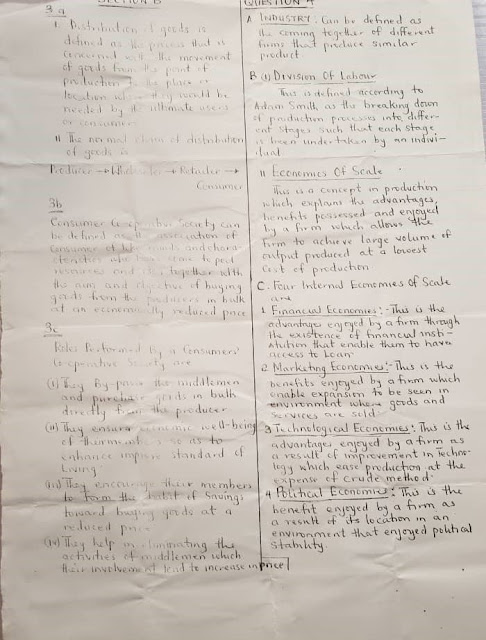 SECTION B
3a
i. Distribution of goods is
defined as the process that is
concerned with the movement
of goods from the point of
production to the place or
location where they would be
needed by the ultimate users
or consumers
ii The normal chain of distribution
of goods is
Producer → Wholesaler → Retailer →
Consumer
3b
Consumer Co-operative Society can
be defined as association of
consumer of and chara-
cteristics who have come to pool
resources and together with
the aim and objective of buying
goods from the producers in bulk
at an economically reduced price
3c
Roles Performed by a Consumers'
Co-operative Society are
(i) They By-pass the middlemen
and purchase goods in bulk
directly from the producer
(ii) They ensure economic well-being
of their members so as to
enhance improve standard of
Living
(iii) They encourage their members
to form the habit of Savings
toward buying goods at a
reduced price
(iv) They help in eliminating the
activities of middlemen which
their involvement lead to increase in price
QUESTION 4
A INDUSTRY: Can be defined as
the coming together of different
firms that produce similar
product.
B (i) Division Of Labour
This is defined according to
Adam Smith, as the breaking down
of production processes into differ-
ent stages such that each stage
is been undertaken by an indivi-
dual
ii Economies Of Scale
This is a concept in production
which explains the advantages,
benefits possessed and enjoyed
by a firm which allows the
firm to achieve large volume of
output produced at a lowest
Cost of production
C. Four Internal Economies of Scale
are
1 Financial Economies:- This is the
advantages enjoyed by a firm through
the existence of financial insti-
tution that enable them to have
access to Loan
2 Marketing Economies:- This is the
benefits enjoyed by a firm which
enable expansion to be seen in
environment where goods and
Services are sold
3 Technological Economies: This is the
advantages enjoyed by a firm as
a result of improvement in Techno-
logy which ease production at the
expense of Crude method.
4 Political Economies: This is the
benefit enjoyed by a firm as
a result of its location in an
environment that enjoyed political
stability.